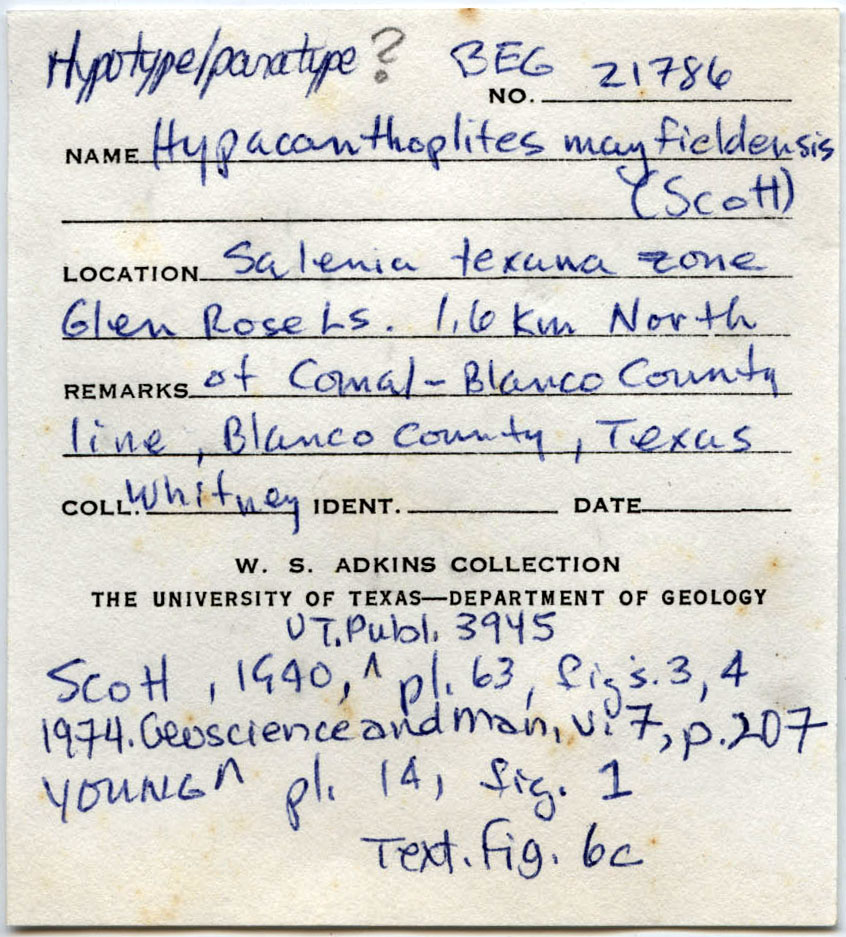 Hypotype/paratype ? BEG
NO. 21786
NAME Hypacanthoplites mayfieldensis
(Scott)
LOCATION Salenia texana zone
Glen Rose Ls. 1.6 Km North
REMARKS of Comal-Blanco County
line, Blanco County, Texas
COLL. Whitney IDENT. DATE
W. S. ADKINS COLLECTION
THE UNIVERSITY OF TEXAS—DEPARTMENT OF GEOLOGY
UT. Publ. 3945
Scott, 1940, ^ pl. 63, fig's. 3, 4
1974. Geoscience and Man, v. 7, p. 207
YOUNG ^ pl. 14, fig. 1
Text. fig. 6c